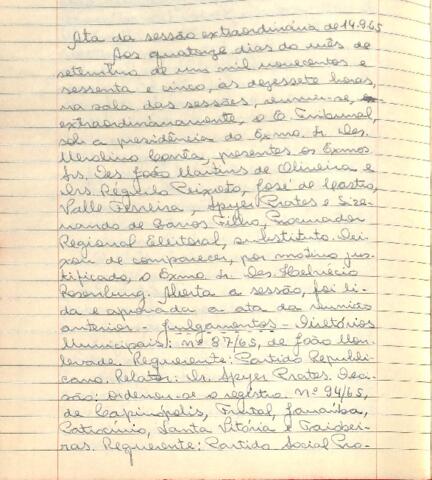 Ata da sessão extraordinária de 14.9.65
Aos quatorze dias do mês de
setembro de um mil novecentos e
sessenta e cinco, às dezessete horas,
na sala das sessões, reuniu-se,
extraordinariamente, o E. Tribunal,
sob a presidência do Exmo. Sr. Des.
Merolino Corrêa, presentes os Exmos
Srs. Des João Martins de Oliveira e
Drs. Régulo Peixoto, José de Castro,
Valle Ferreira, Speyer Prates e
nando de Barros Filho, Procurador
Regional Eleitoral, substituto. Dei-
xou de comparecer, por motivo jus-
tificado, o Exmo. Sr. Des. Helvécio
Rosenburg. Aberta a sessão, foi li-
da e aprovada a ata da reunião
anterior - Julgamentos - Diretórios
Municipais: nº 87/65, de João Mon-
levade. Requerente: Partido Republi-
cano. Relator: Dr. Speyer Prates. Deci-
são: ordenou-se o registro. Nº 94/65,
de Capinópolis, Frutal, Janaúba,
Patrocínio, Santa Vitória e Taiobei-
ras. Requerente: Partido Social Pro-